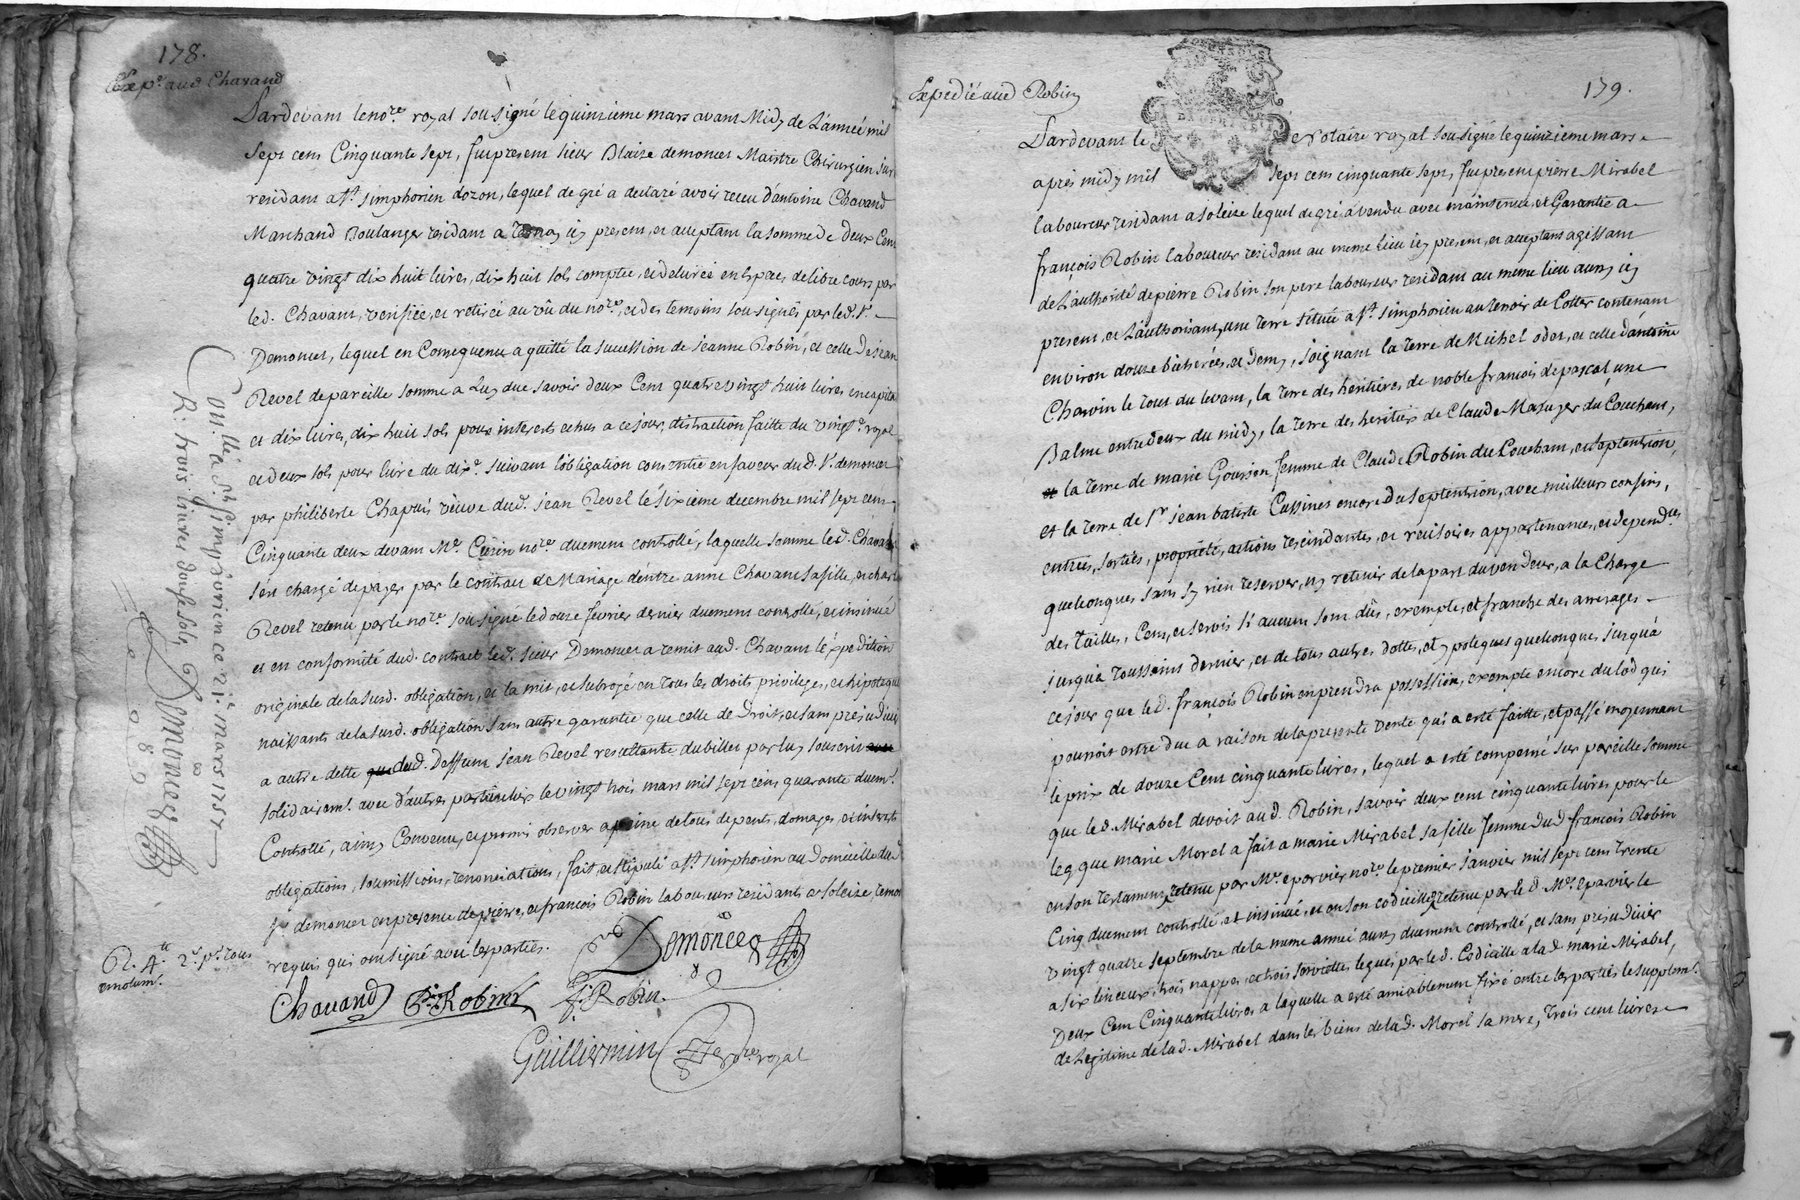 178.
Exp.e aud Chavand
Pardevant le no.re royal soussigné le quinzieme mars avant Midy de L'année mil
sept cens Cinquante sept, fut present sieur Blaize demonces Maistre Chirurgien juré
residant a S.t simphorien dozon, lequel de gré a declaré avoir receu d'antoine Chavand
Marchand Boulanger residant a Ternay icy present, et acceptant la somme de deux Cent
quatre vingt dix huit livres, dix huit sols comptée, et delivrée en Espèces de libre cours par
led. Chavant, verifiée, et retirée au vû du no.re, et des temoins soussignés par led. S.r
Demonces, lequel en Consequence a quitté la succession de jeanne Robin, et celle de jean
Revel de pareille somme a Luy due savoir deux Cent quatre vingt huit livres en capital
et dix livres, dix huit sols pour interets echus a ce jour, distraction faitte du vingt.e royal
et deux sols pour livre du dix.e suivant l'obligation consentie en faveur dud. S.r demonces
par philiberte Chapuis veuve dud. jean Revel le sixieme decembre mil sept cent
Cinquante deux devant M.e no.re duement controllé, laquelle somme led. Chavant
s'en chargé de payer par le contrat de Mariage d'entre anne Chavant sa fille, et charles
Revel retenu par le no.re soussigné le douze fevrier dernier duement controllé, et insinué
et en conformité dud. contract led. sieur Demonces a remit aud. Chavant l'éxpedition
originale de la susd. obligation, et la mis, et subrogé en tous les droits privileges, et hipoteques
naissants de la susd. obligation sans autre garantie que celle de Droit, et sans prejudicier
a autre dette dud. Deffunt jean Revel resultante du billet par luy souscrit
solidairem.t avec d'autres particuliers le vingt trois mars mil sept cens quarante duem.t
Controllé, ainsy Convenu, et promis observer a peine de tous depents, domages, et interets
obligations, soumissions, renonciations, fait, et stipulé a S.t simphorien au Domicille dud.
S.r demonces en presence de pierre, et francois Robin laboureurs residants a soleize temoins
requis qui ont signé avec les parties.
Demonces
Chavand P. Robin f. Robin
Guilliermin no.re royal
Con.llé a S.t Simphorien ce 21.e mars 1757
R: trois livres douse sols,
Demonces
R. 4.tt
emolum.t
Expedié aud Robin
179.
Pardevant le Notaire royal soussigné le quinzieme mars
après midy mil sept cens cinquante sept, fut present pierre Mirabel
laboureur residant a soleize lequel de gré a vendu avec maintenue et Garantie a
françois Robin laboureur residant au meme lieu icy present, et acceptant agissant
de L'authorité de pierre Robin son pere laboureur residant au meme lieu aussy icy
present, et L'authorisant, une Terre située a S.t simphorien au Terroir de Cotter contenant
environ douze bicherées, et demy, joignant la terre de Michel odet, et celle d'antoine
Charvin le tout du levant, la terre des heritiers de noble francois de pascal, une
Balme entre deux du midy, la terre des heritiers de Claude Mazuyer du Couchant,
la terre de marie Gourjon femme de Claude Robin du Couchant, et septentrion,
et la terre de S.r jean batiste Cussinet encore du septentrion, avec meilleurs confins,
entrées, sorties, proprieté, actions rescindantes, et rescisoires appartenances, et depend.ces
quelconques sans sy rien reserver, ny retenir de la part du vendeur, a la Charge
des Tailles, Cens, et servis si aucuns sont dûs, exempte, et franche des arrerages
jusqu'à Toussaint dernier, et de tous autres dettes, et ypoteques quelconques jusqu'à
ce jour que led. françois Robin en prendra possession, exempte encore du lod qui
pourroit ettre due a raison de la presente Vente qui a esté faitte, et passé moyennant
le prix de douze Cent cinquante livres, lequel a esté compensé sur pareille somme
que led. Mirabel devoit aud. Robin, savoir deux cent cinquante livres pour le
leg que marie Morel a fait a marie Mirabel sa fille femme dud françois Robin
en son testament retenu par M.e eparvier no.re le premier janvier mil sept cens trente
Cinq duement controllé, et insinué, et en son codicille retenu par led M.e eparvier le
vingt quatre septembre de la meme année aussy duement controllé, et sans prejudicier
a six linceux, trois nappes, et trois serviettes legués par led. Codicille a lad. marie Mirabel,
Deux Cent Cinquante livres a laquelle a esté amiablement fixé entre les parties le supplem.t
de Legitime de lad. Mirabel dans les biens de lad. Morel sa mere, Trois cent livres